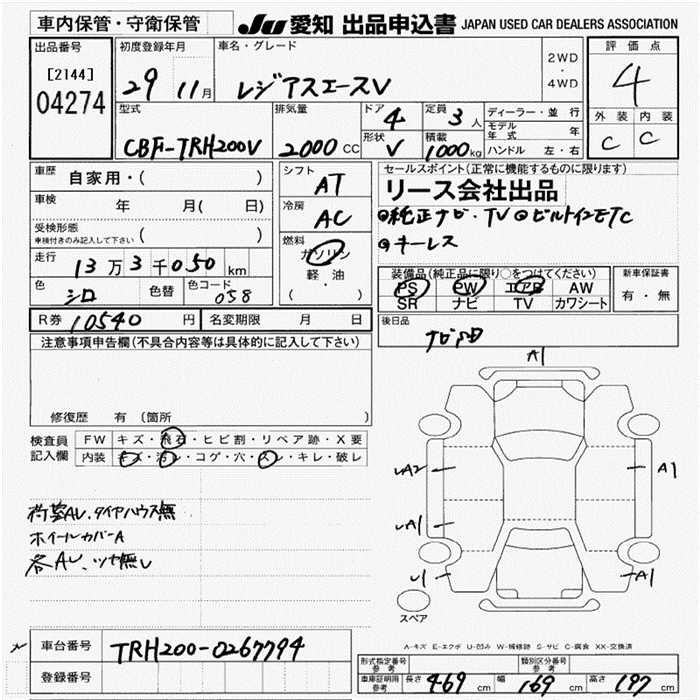 車内保管・守衛保管
JU 愛知 出品申込書 JAPAN USED CAR DEALERS ASSOCIATION
出品番号
[2144]
04274
初度登録年月
29 11月
車名・グレード
レジアスエースV
2WD
・
4WD
評価点
4
外装 内装
C C
型式
CBF-TRH200V
排気量
2000 CC
ドア 4
形状 V
定員 3人
積載 1000kg
ディーラー・並行
モデル年式 年
ハンドル 左・右
車歴 自家用・( )
車検 年 月( 日)
受検形態
車検付きのみ記入して下さい ( )
走行 13万3千050km
色 シロ
色替
色コード 058
シフト AT
冷房 AC
燃料
ガソリン
軽・油
( )
セールスポイント(正常に機能するものに限ります)
リース会社出品
◎純正ナビ・TV ◎ビルトインETC
◎キーレス
装備品(純正品に限り○をつけてください)
PS PW エアB AW
SR ナビ TV カワシート
新車保証書
有・無
R券 10540 円
名変期限 月 日
後日品
注意事項申告欄(不具合内容等は具体的に記入して下さい)
修復歴 有(箇所 )
検査員
記入欄
FW キズ・飛石・ヒビ割・リペア跡・X要
内装 キズ・汚レ・コゲ・穴・スレ・キレ・破レ
荷室AU、タイヤハウス無
ホイールカバーA
各AU、ツヤ無し
A1
UA2
A1
UA1
U1
A1
スペア
A-キズ E-エクボ U-凹み W-補修跡 S-サビ C-腐食 XX-交換済
車台番号 TRH200-0267794
登録番号
形式指定番号
参考
類別区分番号
参考
車庫証明用
参考
長さ 469 cm 幅 169 cm 高さ 197 cm